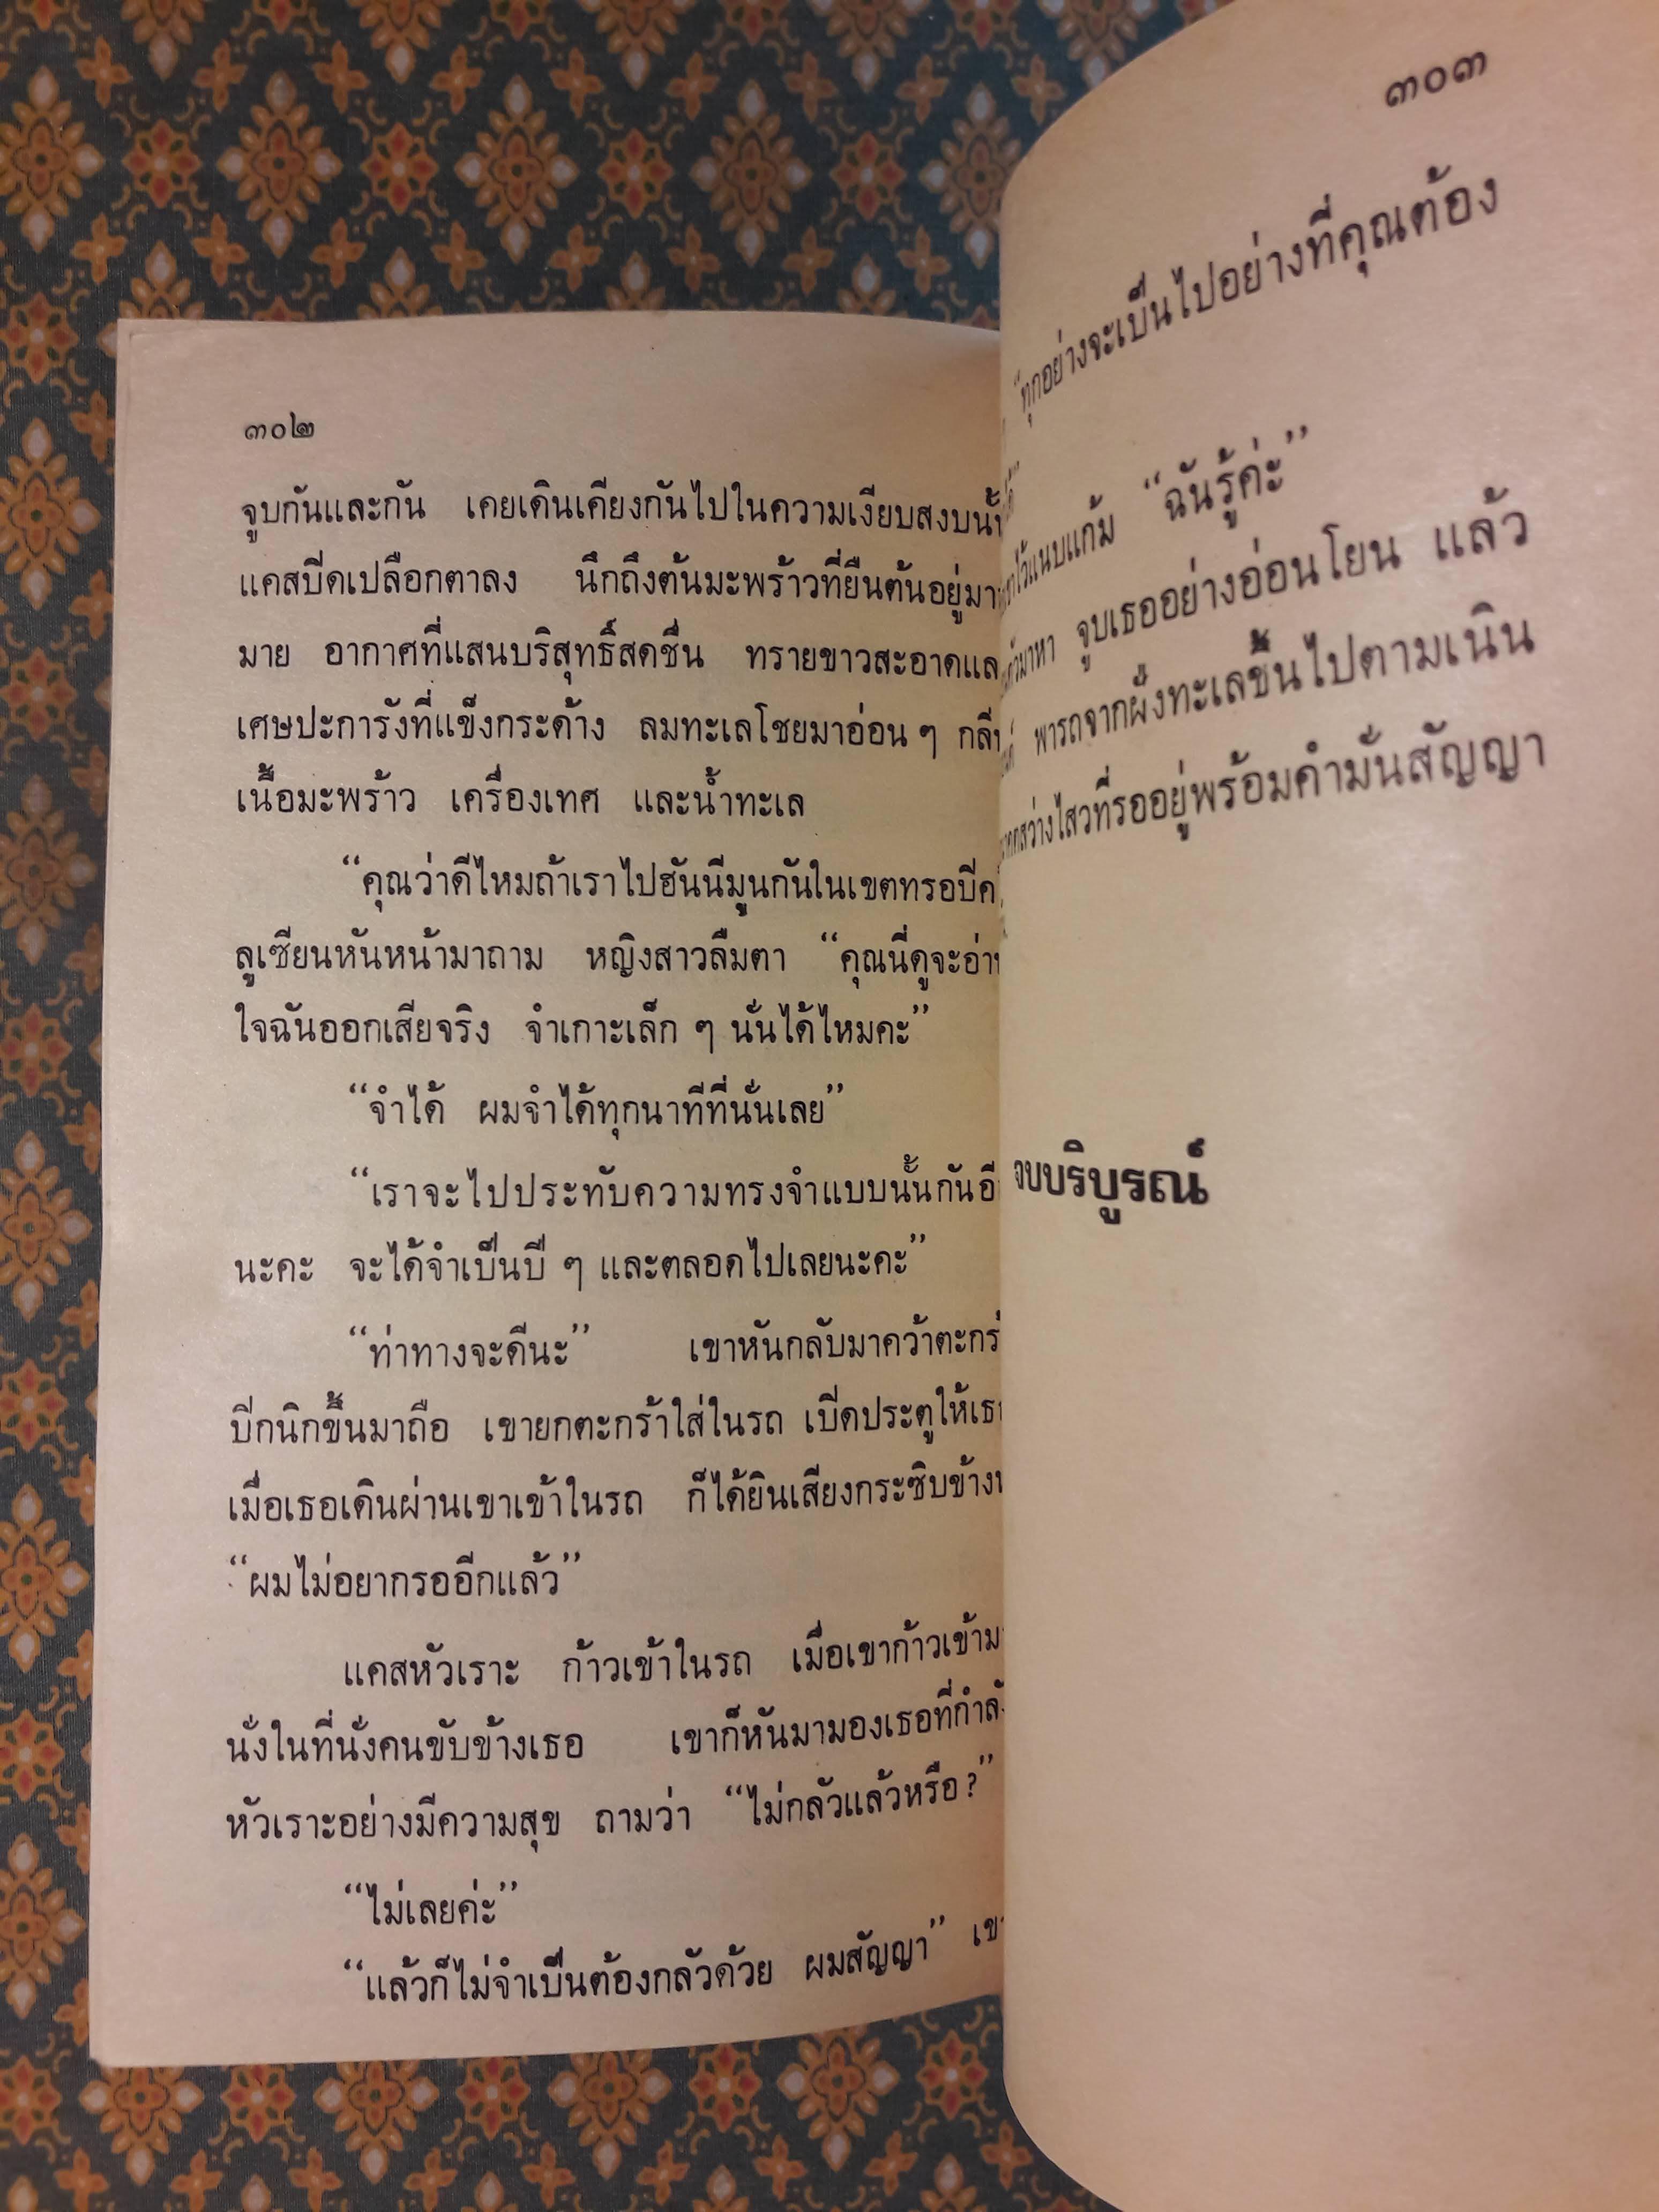 ๓๐๒
จูบกันและกัน เคยเดินเคียงกันไปในความเงียบสงบนั้น
แคสปิดเปลือกตาลง นึกถึงต้นมะพร้าวที่ยืนต้นอยู่มา
มาย อากาศที่แสนบริสุทธิ์สดชื่น ทรายขาวสะอาดแล
เศษปะการังที่แข็งกระด้าง ลมทะเลโชยมาอ่อน ๆ
เนื้อมะพร้าว เครื่องเทศ และน้ำทะเล
“คุณว่าดีไหมถ้าเราไปฮันนีมูนกันในเขตทรอปิค
ลูเซียนหันหน้ามาถาม หญิงสาวลืมตา “คุณนี่ดูจะอ่า
ใจฉันออกเสียจริง จำเกาะเล็ก ๆ นั่นได้ไหมคะ”
“จำได้ ผมจำได้ทุกนาทีที่นั่นเลย”
“เราจะไปประทับความทรงจำแบบนั้นกันอี
นะคะ จะได้จำเป็นปี ๆ และตลอดไปเลยนะคะ”
“ท่าทางจะดีนะ” เขาหันกลับมาคว้าตะกร้
ปิกนิกขึ้นมาถือ เขายกตะกร้าใส่ในรถ เปิดประตูให้เธ
เมื่อเธอเดินผ่านเขาเข้าในรถ ก็ได้ยินเสียงกระซิบข้าง
“ผมไม่อยากรออีกแล้ว”
แคสหัวเราะ ก้าวเข้าในรถ เมื่อเขาก้าวเข้าม
นั่งในที่นั่งคนขับข้างเธอ เขาก็หันมามองเธอที่กำลั
หัวเราะอย่างมีความสุข ถามว่า “ไม่กลัวแล้วหรือ?”
“ไม่เลยค่ะ”
“แล้วก็ไม่จำเป็นต้องกลัวด้วย ผมสัญญา” เข
๓๐๓
“ทุกอย่างจะเป็นไปอย่างที่คุณต้อง
ไว้แนบแก้ม “ฉันรู้ค่ะ”
มาหา จูบเธออย่างอ่อนโยน แล้ว
พารถจากฝั่งทะเลขึ้นไปตามเนิน
สว่างไสวที่รออยู่พร้อมคำมั่นสัญญา
จบบริบูรณ์